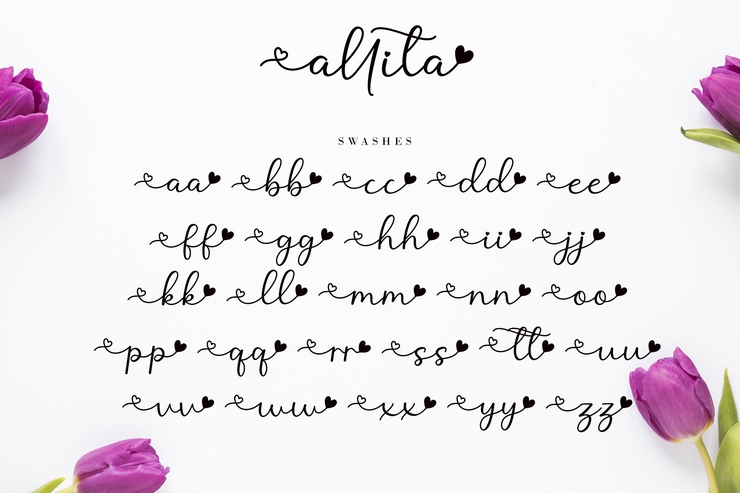 allita
SWASHES
aa bb cc dd ee
ff gg hh ii jj
kk ll mm nn oo
pp qq rr ss tt uu
vv ww xx yy zz